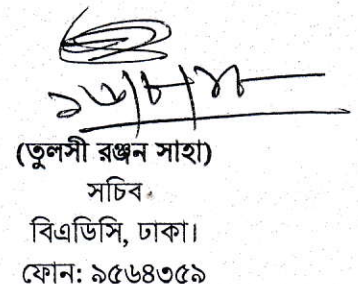 (তুলসী রঞ্জন সাহা)
সচিব
বিএডিসি, ঢাকা।
ফোন: ৯৫৬৪৩৫৯